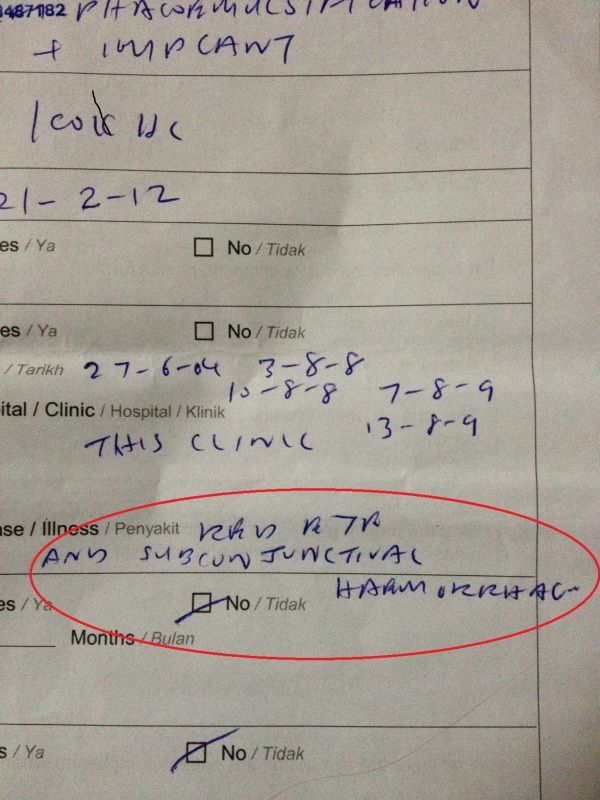 3487182 PHACOEMULSIFICATION
+ IMPLANT
21-2-12
es / Ya No / Tidak
es / Ya No / Tidak
/ Tarikh 27-6-04 3-8-8
10-8-8 7-8-9
ital / Clinic / Hospital / Klinik 13-8-9
THIS CLINIC
ase / Illness / Penyakit RED EYE
AND SUBCONJUNCTIVAL
HAEMORRHAGE
es / Ya No / Tidak
Months / Bulan
s / Ya No / Tidak